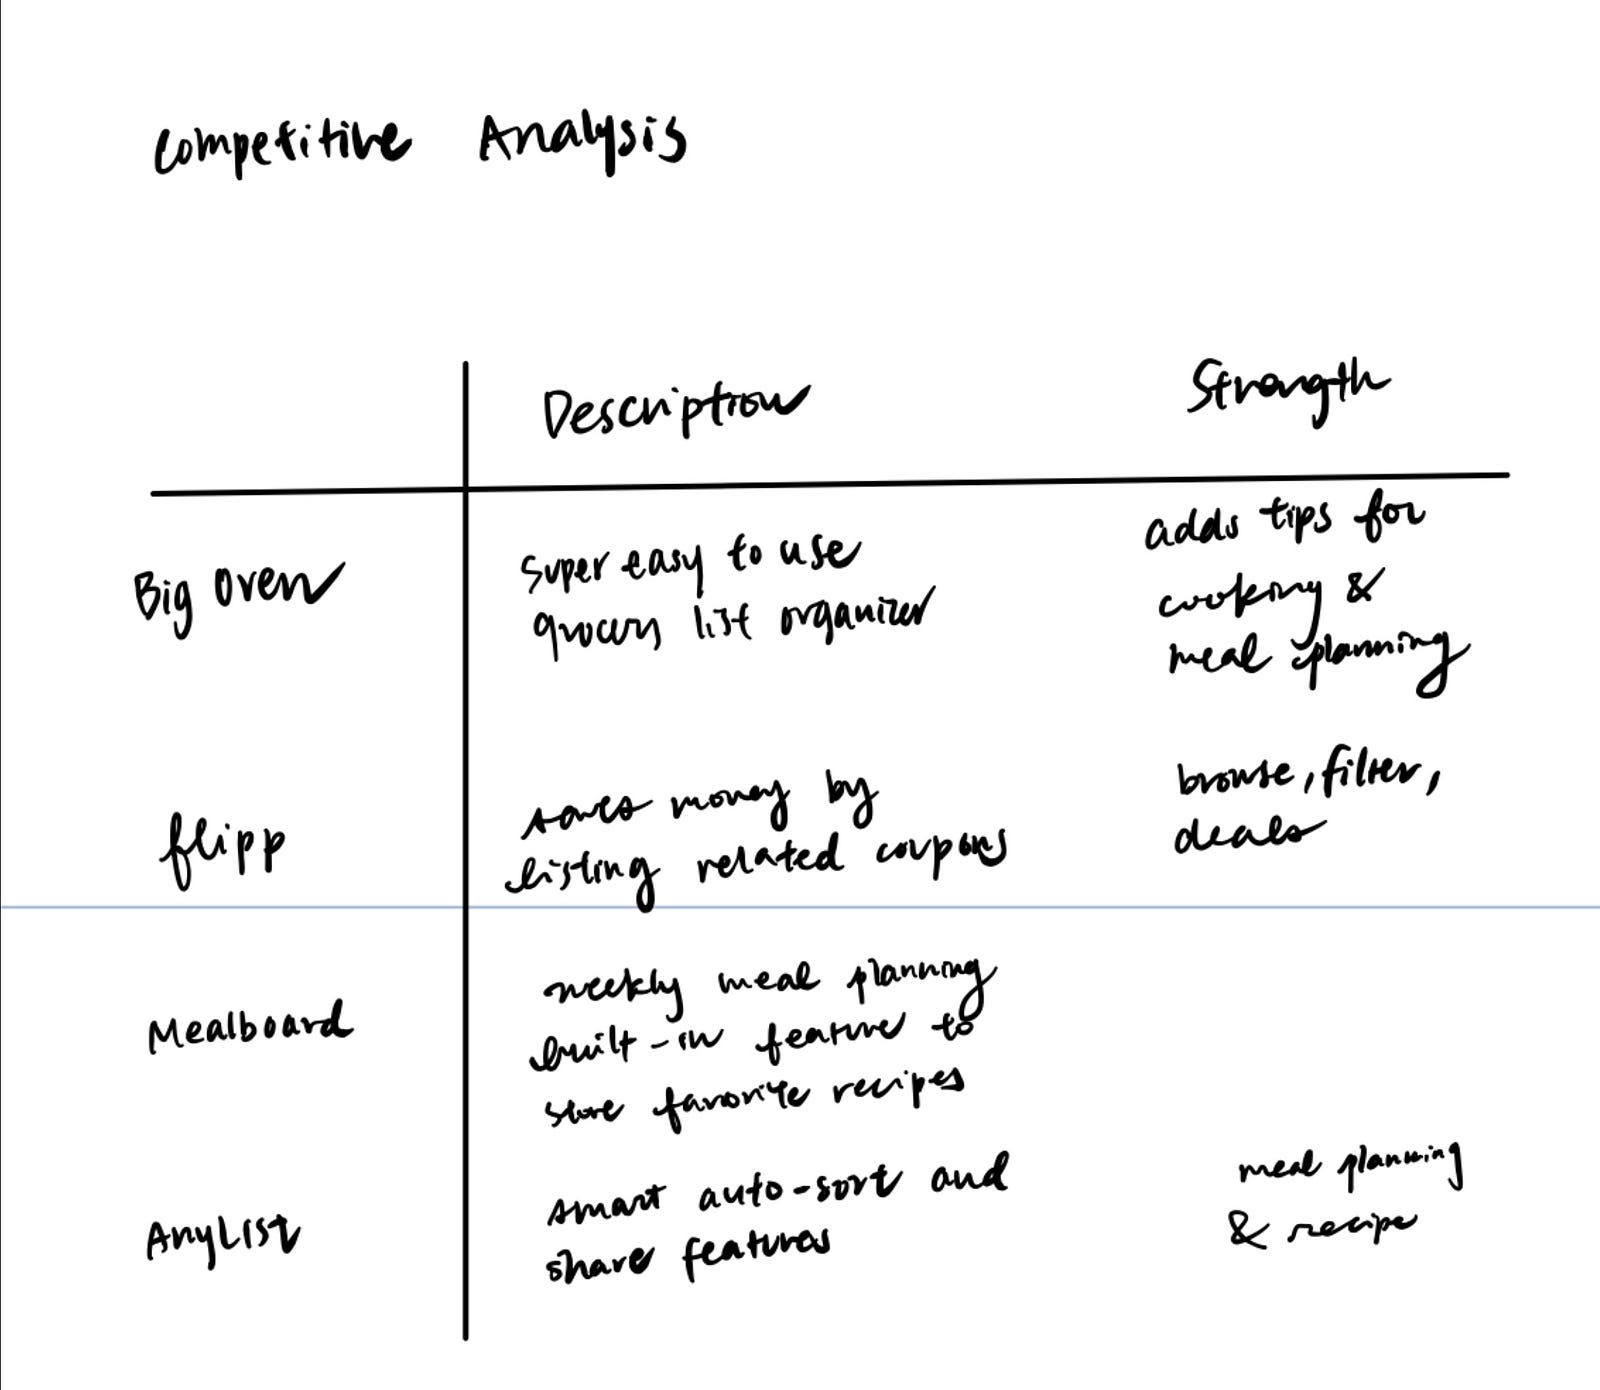 Competitive Analysis
Description Strength
Big Oven
super easy to use
grocery list organizer
adds tips for
cooking &
meal planning
flipp
saves money by
listing related coupons
browse, filter,
deals
Mealboard
weekly meal planning
built-in feature to
store favorite recipes
AnyList
smart auto-sort and
share features
meal planning
& recipe